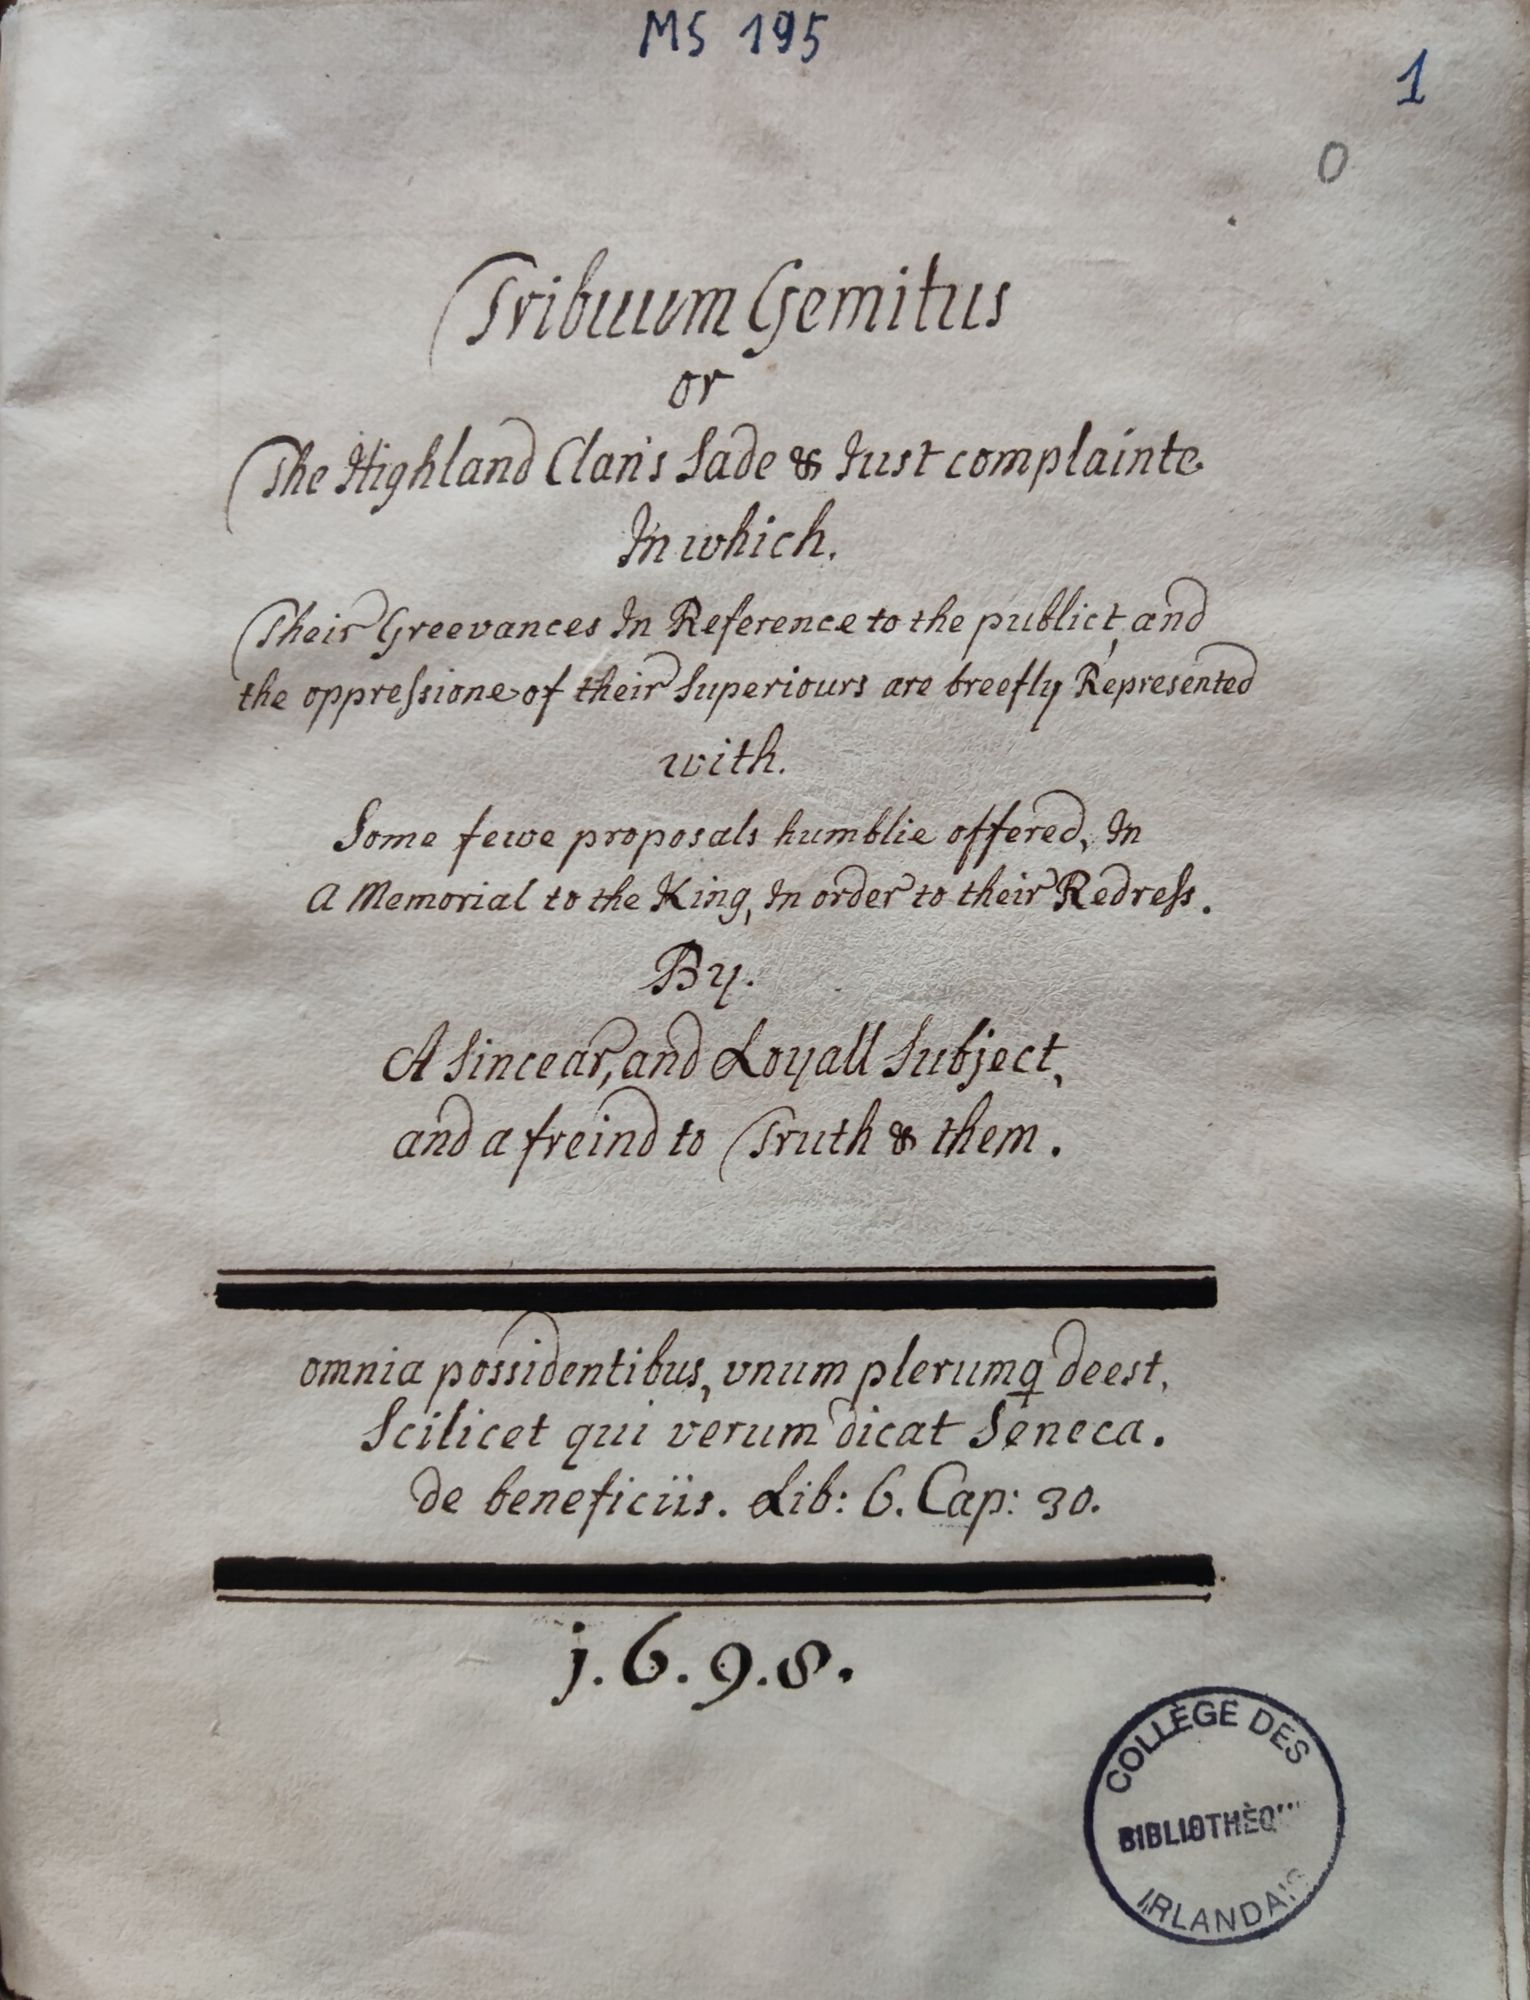 MS 195
1
0
Tribuum Gemitus
or
The Highland Clan's Sade & Iust complainte
In which.
Their Greevances In Reference to the publict, and
the oppreſsione of their Superiours are breefly Represented
with.
Some fewe proposals humblie offered, In
A Memorial to the King, In order to their Redreſs.
By.
A Sincear, and Loyall Subject,
and a freind to Truth & them.
omnia possidentibus, vnum plerumq deest,
Scilicet qui verum dicat Seneca.
de beneficiis. Lib: 6. Cap: 30.
j.6.9.8.
COLLÈGE DES
BIBLIOTHÈQ
IRLANDAIS